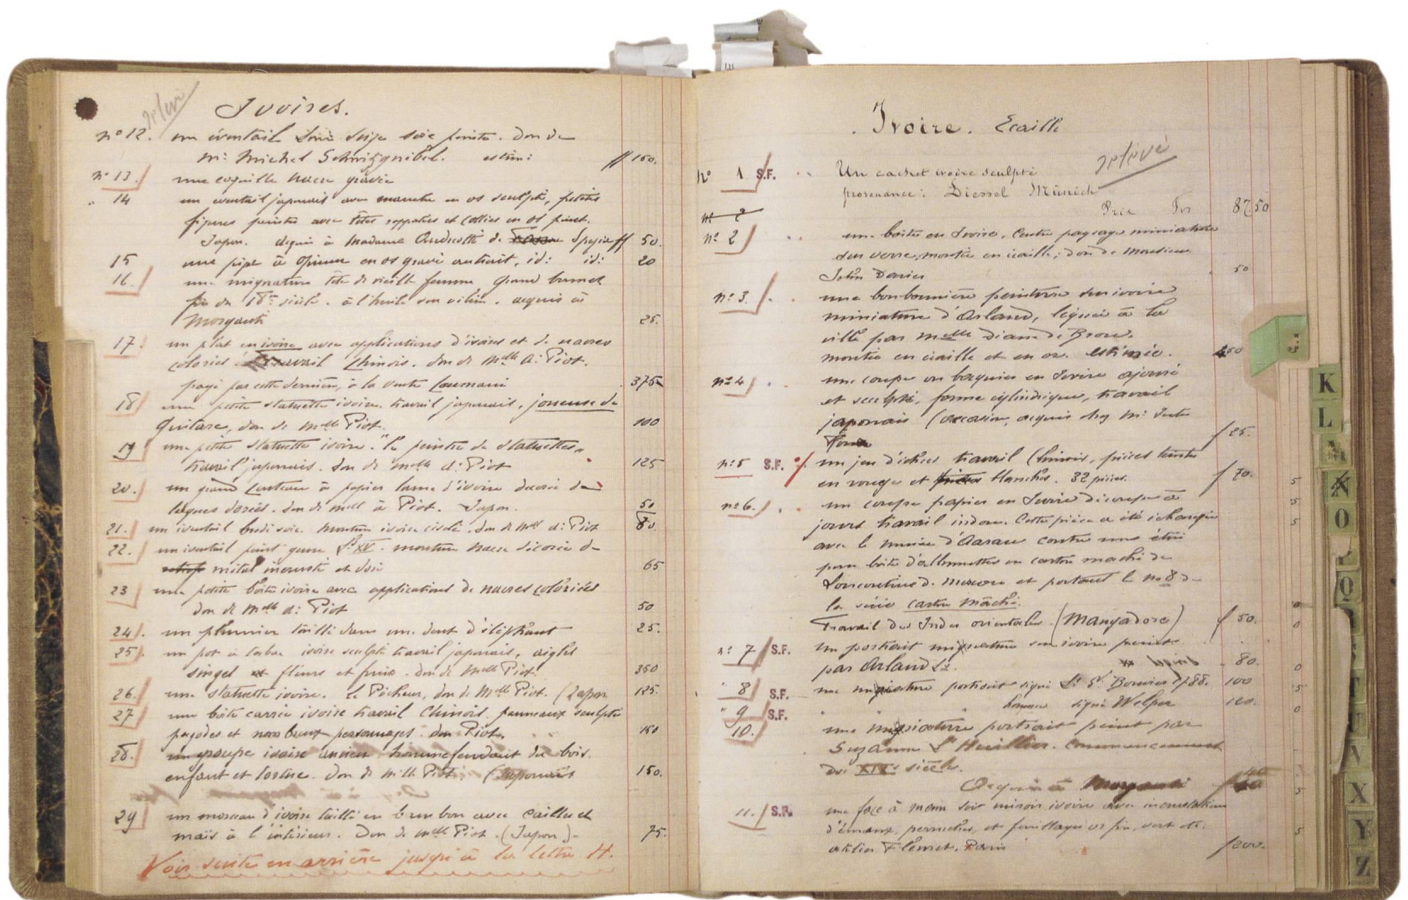 relevé
Ivoires.
n° 12. un éventail soie peinte. Don de
Mr. Michel estim: ff 150.
n° 13. une coquille nacre gravée
14 un éventail japonais avec manche en os sculpté, petites
figures peintes avec têtes rapportées et collées en os peint.
Japon. acquis à Madame de Spezia ff 50.
15 une pipe à opium en os gravé id: id: 20
16. une tête de vieille femme, grand bonnet
fin du 18me siècle. à l'huile sur acquis à
Morganti 25.
17 un plat en ivoire avec applications d'ivoires et de nacres
coloriés travail Chinois. don de Mlle A. Piot.
payé par cette dernière, à la vente 375
18 une petite statuette ivoire. travail japonais, joueuse de
Guitare, don de Mlle Piot. 100
19 une petite statuette ivoire. "le peintre de statuettes"
travail japonais. Don de Mlle A. Piot 125
20. un grand couteau à papier lame d'ivoire décorée de
laques dorés. don de Mlle A. Piot. Japon. 50
21. un éventail soie. monture ivoire don de Mlle A. Piot 80.
22. un éventail peint genre Ls XV. monture nacre décorée de
métal incrusté et doré 65
23 une petite boîte ivoire avec applications de nacres coloriées
Don de Mlle A. Piot 50
24. un plumier taillé dans une dent d'éléphant 25.
25. un pot à tabac ivoire sculpté travail japonais, aigles
singes fleurs et fruits. don de Mlle Piot 350
26. une statuette ivoire. Le Pêcheur, don de Mlle Piot. (Japon
27 une boîte carrée ivoire travail Chinois, panneaux sculptés
pagodes et nombreux personnages. don Piot. 150
28. un groupe ivoire ancien homme fendant du bois.
enfant et tortue. Don de Mlle Piot (Japonais 150.
29 un morceau d'ivoire taillé en bambou avec cailles et
maïs à l'intérieur. Don de Mlle Piot. (Japon). 75.
Voir suite en arrière jusqu'à la lettre H.
Ivoire. Ecaille
relevé
n° 1 S.F. Un cachet ivoire sculpté
provenance: Diessel Münich
Prix Frs 87 50
n° 2
n° 2 une boîte en Ivoire, Centre paysage miniature
sous verre, montée en écaille; don de Monsieur
John Davies 50
n° 3. une bonbonnière peinture sur ivoire
miniature d'Arland, léguée à la
ville par Melle
montée en écaille et en or. estimée.
n° 4 une coupe ou baguier en Ivoire ajouré
et sculpté, forme cylindrique, travail
japonais (occasion, acquis chez Mr
f 25.
n° 5 S.F. un jeu d'échecs travail Chinois. pièces teintes
en rouges et blanches. 32 pièces. f 70.
n° 6. un coupe papier en Ivoire découpé à
jours travail indou. Cette pièce a été échangée
avec le musée d'Aarau contre une
pour boîte d'allumettes en carton mâché de
et portant le no 8 de
la série carton mâché.
Travail des Indes orientales (Mangadore) f 50.
n° 7 S.F. un portrait miniature sur ivoire peint
par Arlaud 80.
8 S.F. une miniature portrait signé Bouvier 1788. 100
9 S.F. " " homme signé Welper 100.
10. une miniature portrait peint par
Suzanne L'Huillier. Commencement
du XIXe siècle.
Acquis à Morganti
11. S.F. une face à main soit miroir ivoire avec incrustation
d'émaux, perruches, et feuillages or fin, vert etc.
atelier Paris f 200.
K
L
M
N
O
Q
V
X
Y
Z